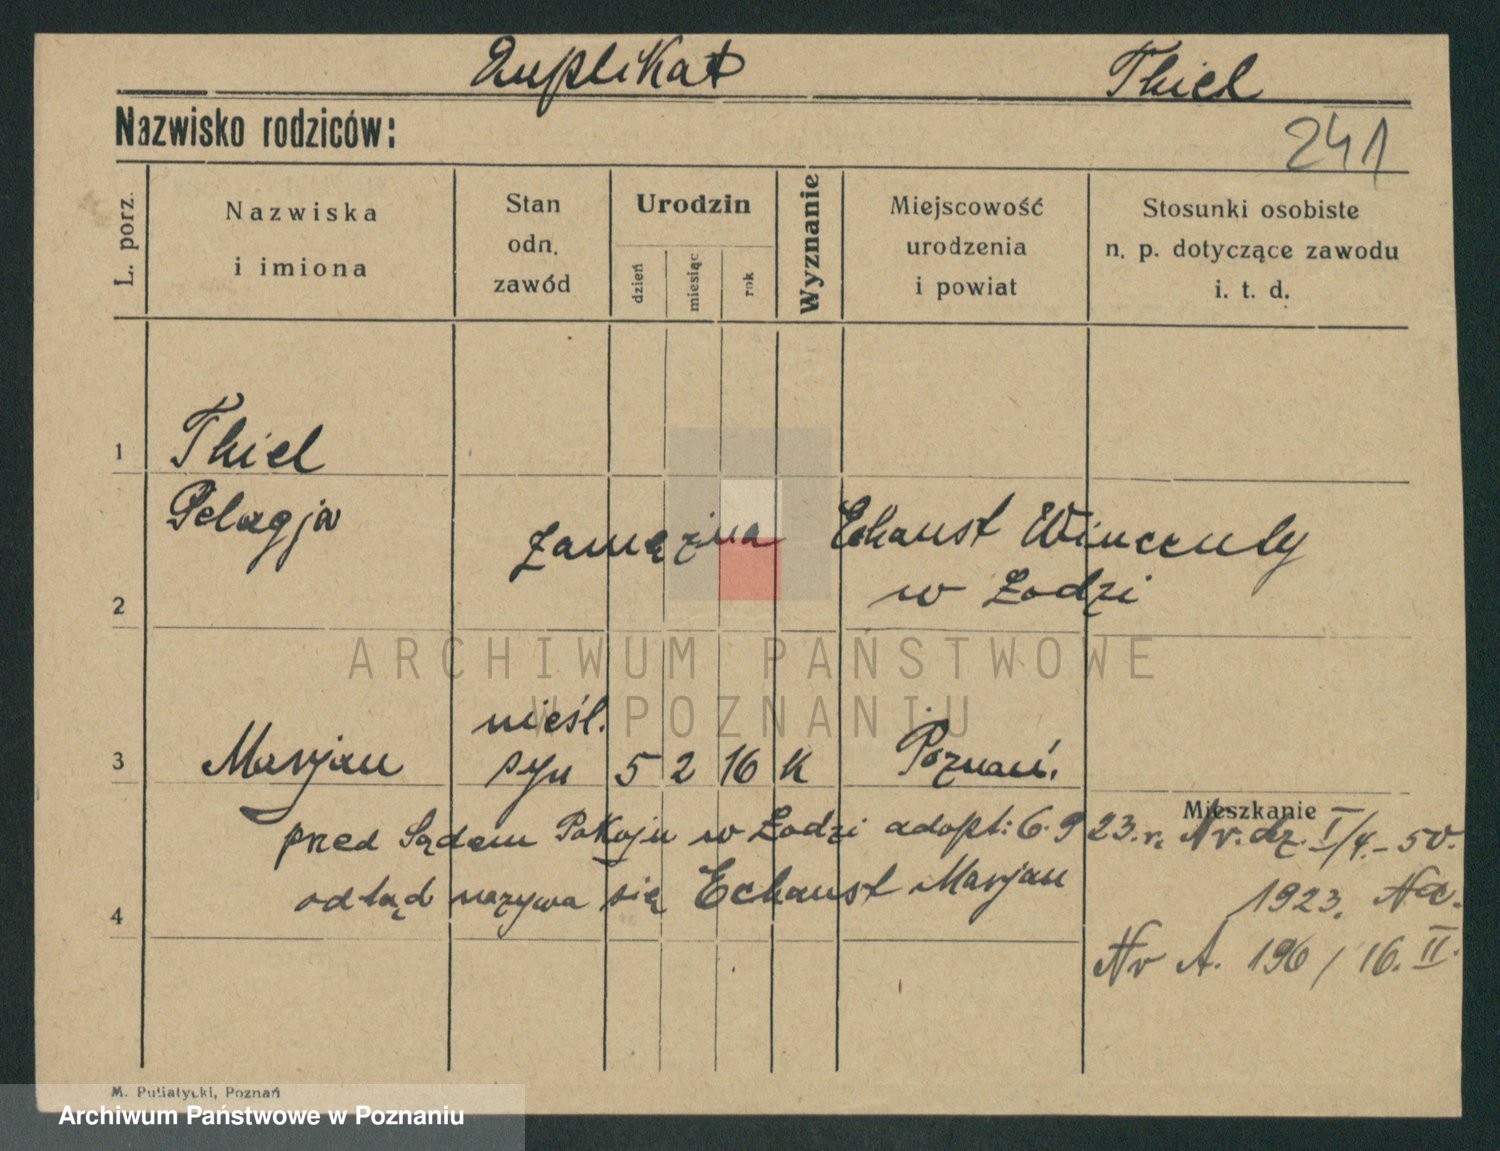 Duplikat Thiel
Nazwisko rodziców:
241
L. porz.
Nazwiska
i imiona
Stan
odn.
zawód
Urodzin
dzień
miesiąc
rok
Wyznanie
Miejscowość
urodzenia
i powiat
Stosunki osobiste
n. p. dotyczące zawodu
i. t. d.
1 Thiel
Pelagja
zamężna Echaust Wincenty
w Łodzi
2
nieśl.
3 Marjan syn 5 2 16 K Poznań.
Mieszkanie
pred Sądem Pokoju w Łodzi adopt: 6.9 23.r. Nr. dz. I/4.-50.
1923.
odtąd nazywa się Echaust Marjan
4
Nr A. 196/16. II.
M. Putiatycki, Poznań
ARCHIWUM PAŃSTWOWE
W POZNANIU
Archiwum Państwowe w Poznaniu